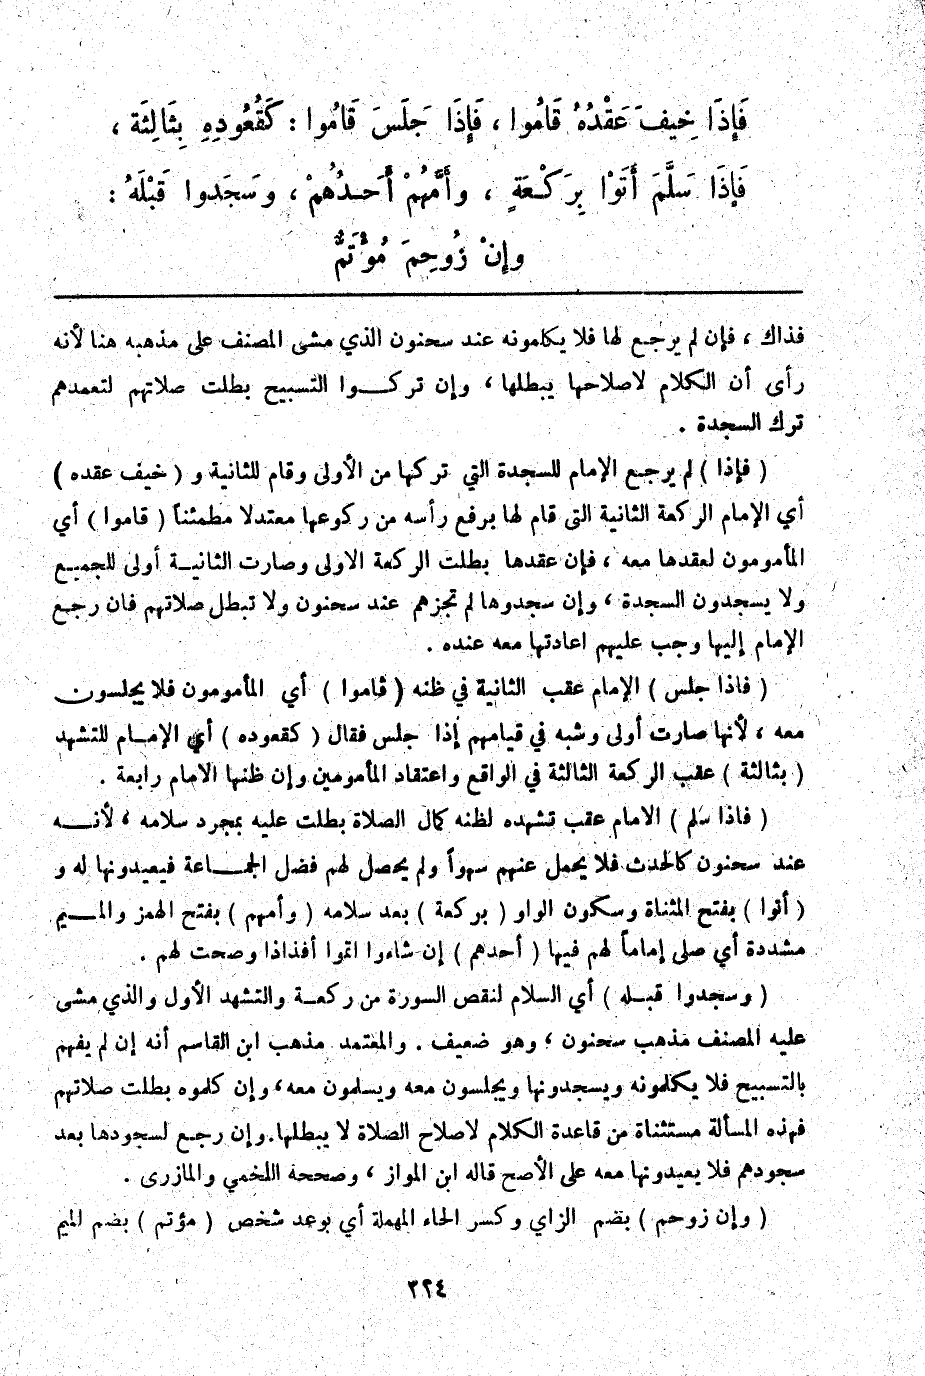 فَإِذَا خِيفَ عَقْدُهُ قَامُوا ، فَإِذَا جَلَسَ قَامُوا : كَقُعُودِهِ بِثَالِثَة ،
فَإِذَا سَلَّمَ أَتَوْا بِرَكْعَةٍ ، وأَمَّهُمْ أَحَدُهُمْ ، وسَجَدوا قَبْلَهُ :
وإنْ زُوحِمَ مُؤْتَمٌّ
فذاك ، فإن لم يرجع لها فلا يكلمونه عند سحنون الذي مشى المصنف على مذهبه هنا لأنه
رأى أن الكلام لاصلاحها يبطلها ، وإن تركوا التسبيح بطلت صلاتهم لتعمدهم
ترك السجدة .
( فإذا ) لم يرجع الإمام للسجدة التي تركها من الأولى وقام للثانية و ( خيف عقده )
أي الإمام الركعة الثانية التى قام لها برفع رأسه من ركوعها معتدلا مطمئناً ( قاموا ) أي
المأمومون لعقدها معه ، فإن عقدها بطلت الركعة الاولى وصارت الثانية أولى للجميع
ولا يسجدون السجدة ، وإن سجدوها لم تجزهم عند سحنون ولا تبطل صلاتهم فان رجع
الإمام إليها وجب عليهم اعادتها معه عنده .
( فاذا جلس ) الإمام عقب الثانية في ظنه ( قاموا ) أي المأمومون فلا يجلسون
معه ، لأنها صارت أولى وشبه في قيامهم إذا جلس فقال ( كقعوده ) أي الإمام للتشهد
( بثالثة ) عقب الركعة الثالثة في الواقع واعتقاد المأمومين وإن ظنها الامام رابعة .
( فاذا سلم ) الامام عقب تشهده لظنه كمال الصلاة بطلت عليه بمجرد سلامه ، لأنه
عند سحنون كالحدث فلا يحمل عنهم سهواً ولم يحصل لهم فضل الجماعة فيعيدونها له و
( أتوا ) بفتح المثناة وسكون الواو ( بركعة ) بعد سلامه ( وأمهم ) بفتح الهمز والميم
مشددة أي صلى إماماً لهم فيها ( أحدهم ) إن شاءوا اتموا أفذاذا وصحت لهم .
( وسجدوا قبله ) أي السلام لنقص السورة من ركعة والتشهد الأول والذي مشى
عليه المصنف مذهب سحنون ، وهو ضعيف . والمعتمد مذهب ابن القاسم أنه إن لم يفهم
بالتسبيح فلا يكلمونه ويسجدونها ويجلسون معه ويسلمون معه ، وإن كلموه بطلت صلاتهم
فهذه المسألة مستثناة من قاعدة الكلام لاصلاح الصلاة لا يبطلها.وإن رجع لسجودها بعد
سجودهم فلا يعيدونها معه على الأصح قاله ابن المواز ، وصححه اللخمي والمازرى .
( وإن زوحم ) بضم الزاي وكسر الحاء المهملة أي بوعد شخص ( مؤتم ) بضم الميم
٣٢٤